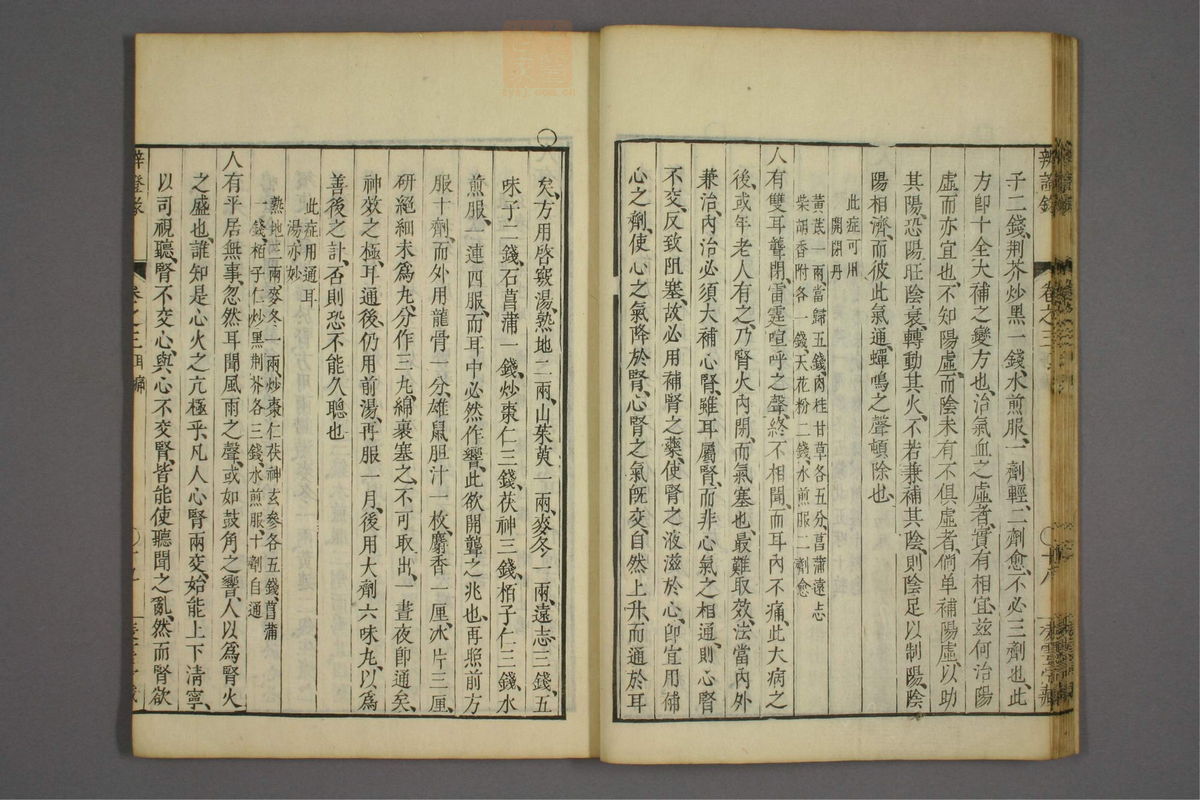 子二錢、荆芥炒黑一錢、水煎服、一劑輕、二劑愈、不必三劑也、此
方卽十全大補之變方也、治氣血之虛者、實有相宜、兹何治陽
虛而亦宜也、不知陽虛而陰未有不俱虛者、倘单補陽虛、以助
其陽、恐陽旺陰衰、轉動其火、不若兼補其陰、則陰足以制陽、陰
陽相濟、而彼此氣通、蟬鳴之聲頓除也、
此症可用
開閉丹
黃芪一兩當歸五錢肉桂甘草各五分、菖蒲遠志
柴胡香附各一錢、天花粉二錢、水煎服二劑愈
人有雙耳聾閉、雷霆喧呼之聲、終不相聞、而耳內不痛、此大病之
後、或年老人有之、乃腎火內閉、而氣塞也、最難取效、法當內外
兼治、內治必須大補心腎、雖耳屬腎、而非心氣之相通、則心腎
不交、反致阻塞、故必用補腎之藥、使腎之液滋於心、卽宜用補
心之劑、使心之氣降於腎、心腎之氣旣交、自然上升、而通於耳
辨證錄
卷之三
矣、方用啓竅湯、熟地二兩、山茱萸一兩、麥冬一兩、遠志三錢、五
味子二錢、石菖蒲一錢、炒棗仁三錢、茯神三錢、栢子仁三錢、水
煎服、一連四服、而耳中必然作響、此欲開聾之兆也、再照前方
服十劑、而外用龍骨一分、雄鼠胆汁一枚、麝香一厘、冰片三厘、
研絕細末爲丸、分作三丸、綿裹塞之、不可取出、一晝夜卽通矣、
神效之極、耳通後、仍用前湯、再服一月、後用大劑六味丸、以爲
善後之計、否則恐不能久聰也、
此症用通耳
湯亦妙
熟地三兩麥冬一兩、炒棗仁茯神玄參各五錢、菖蒲
一錢、栢子仁炒黑荆芥各三錢、水煎服、十劑自通
人有平居無事、忽然耳聞風雨之聲、或如鼓角之響、人以爲腎火
之盛也、誰知是心火之亢極乎、凡人心腎兩交、始能上下淸寧、
以司視聽、腎不交心、與心不交腎、皆能使聽聞之亂、然而腎欲